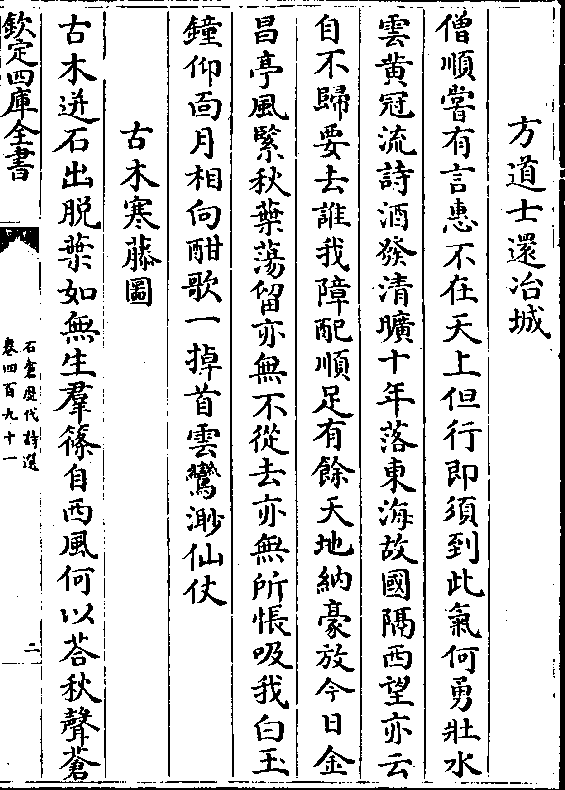 方道士還冶城
僧順嘗有言惠不在天上但行即須到此氣何勇壯水
雲黄冠流詩酒發清曠十年落東海故國隔西望亦云
自不歸要去誰我障配順足有餘天地納豪放今日金
昌亭風緊秋葉蕩留亦無不從去亦無所悵吸我白玉
鐘仰面月相向酣歌一掉首雲鸞渺仙仗
古木寒藤圖
古木迸石出脱葉如無生羣篠自西風何以荅秋聲蒼
欽定四庫全書
石倉歷代詩選
卷四百九十一
二